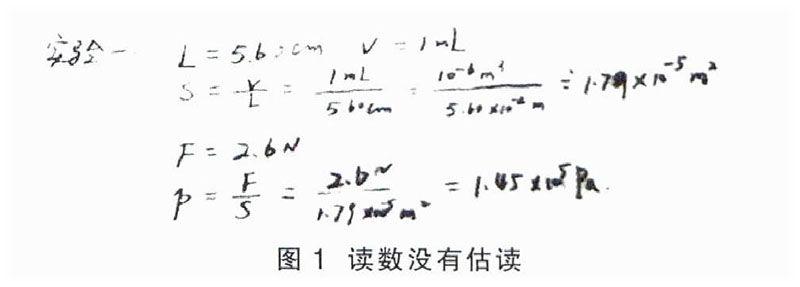 实验一 L = 5.60cm V = 1mL
S = V/L = 1mL/5.60cm = 10⁻⁶m³/5.60×10⁻²m = 1.79×10⁻⁵m²
F = 2.6N
p = F/S = 2.6N/1.79×10⁻⁵m² = 1.45×10⁵Pa.
图 1 读数没有估读